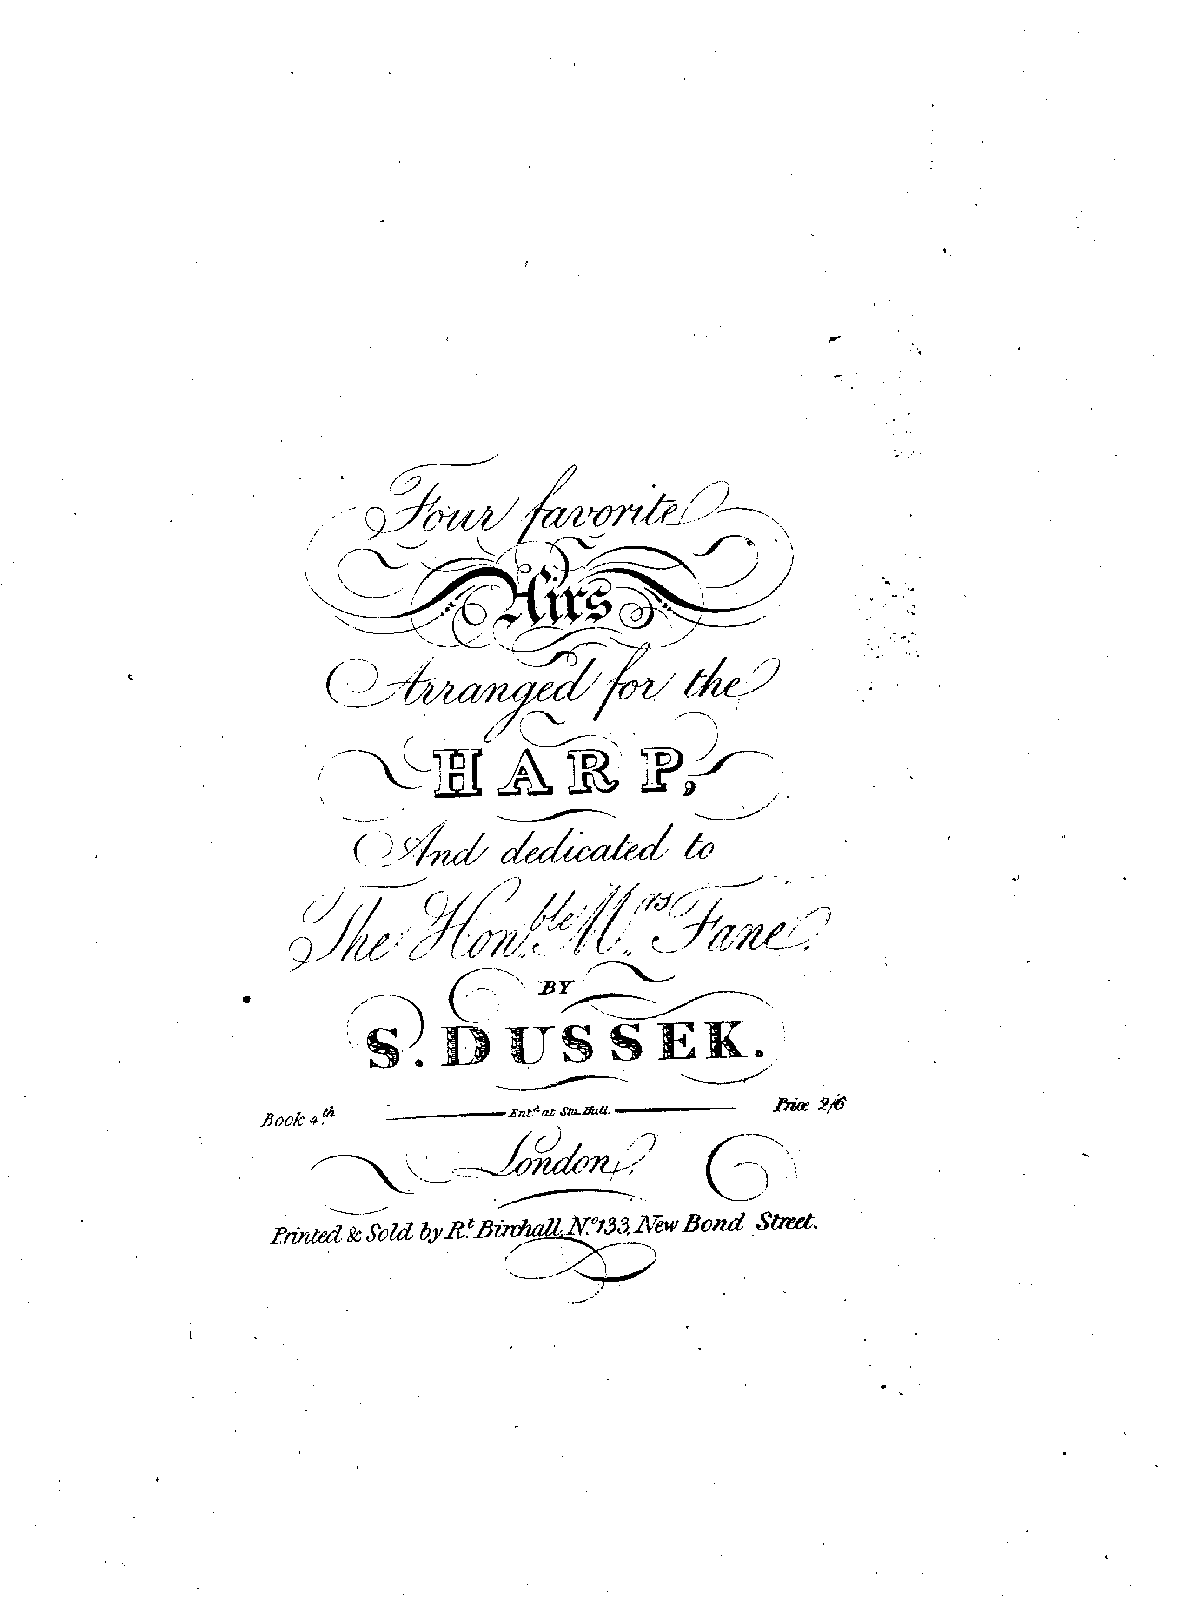 Four favorite
Airs
Arranged for the
HARP,
And dedicated to
The Hon.ble M.rs Fane.
BY
S. DUSSEK.
Book 4.th
Ent.d at Sta. Hall.
Price 2/6
London.
Printed & Sold by R.t Birchall, N.o 133, New Bond Street.